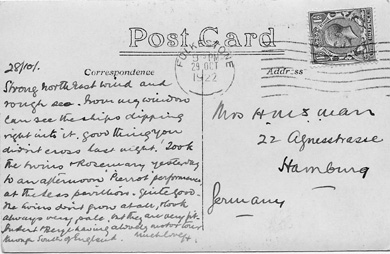 Post Card
FOLKESTONE
9 PM
29 OCT
1922
28/10/.
Correspondence
Address
Strong north East wind and
rough sea. From my window
can see the ships dipping
right into it. Good thing you
didn't cross last night. Took
the twins & Rosemary yesterday
to an afternoon Pierrot performance
at the Leas pavilion. Quite good.
The twins don't grow at all, look
always very pale, but they are very fit.
& Beryl having a lovely motor tour
South of England. Much love
Mrs
22 Agnesstrasse
Hamburg
Germany